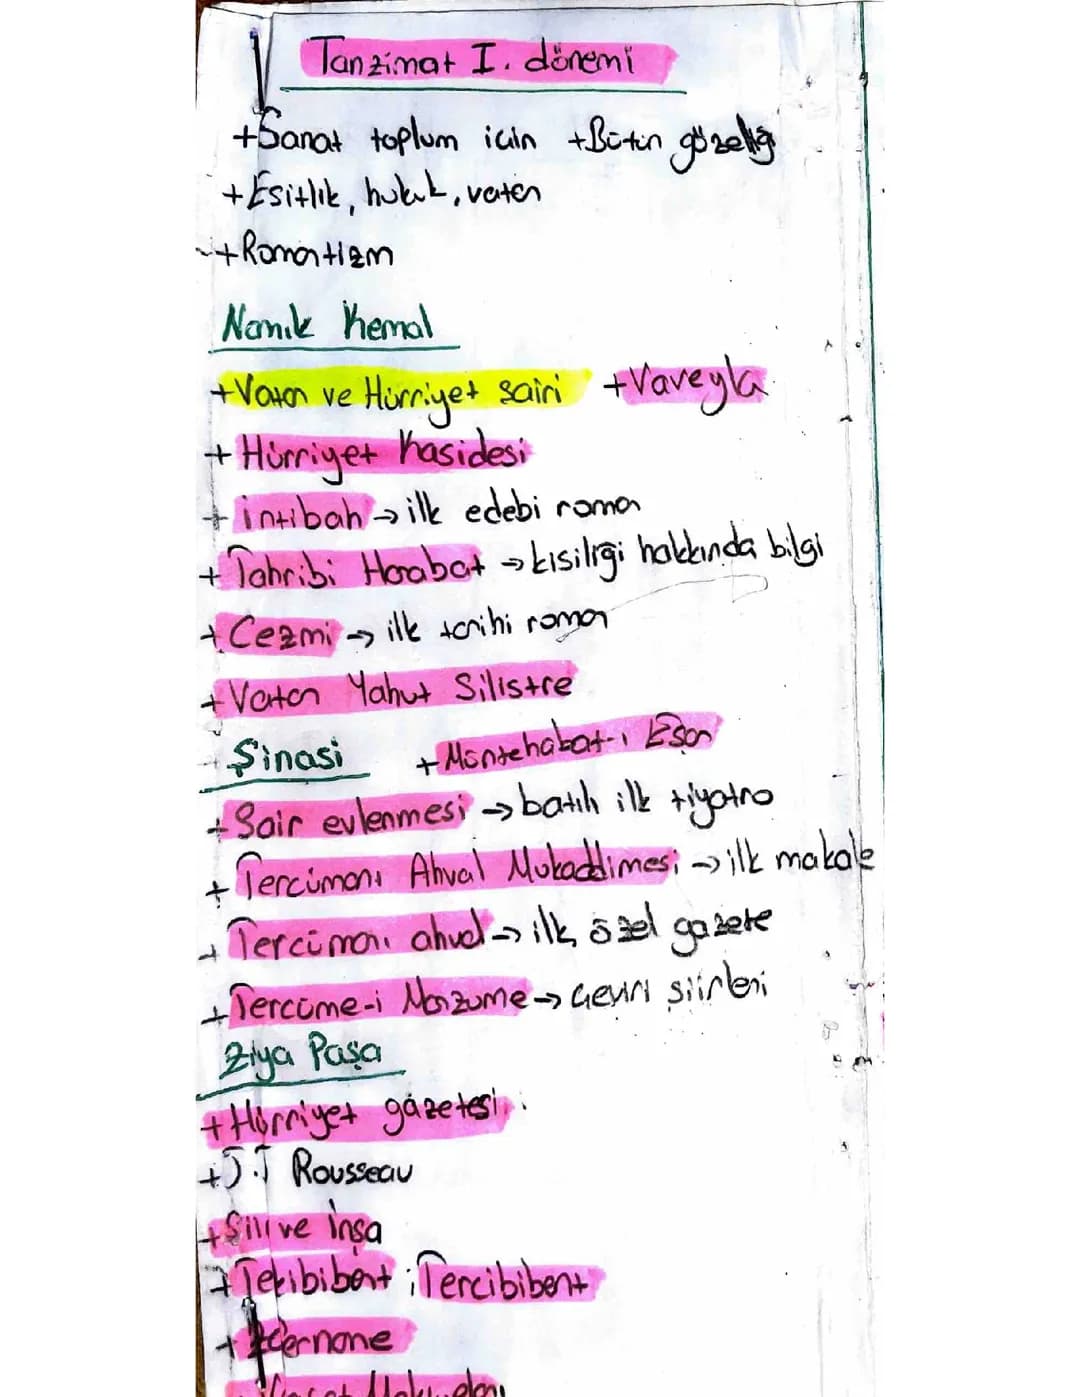 Tanzimat I. dönemi
+Sanat toplum için +Bütün güzelliği
+Esitlik, hukuk, vatan
+Romantizm
Namık Kemal
+Vatan ve Hürriyet sairi +Vaveyla
+Hürriyet Kasidesi
+İntibah→ilk edebi roman
+Tahribi Harabat →kisiliği hakkında bilgi
+Cezmi→ ilk tarihi roman
+Vatan Yahut Silistre
Şinasi +Müntehabat-ı Eşar
+Sair evlenmesi →batılı ilk tiyatro
+Tercümanı Ahval Mukaddimesi →ilk makale
+Tercümanı ahval→ ilk özel gazete
+Tercüme-i Manzume→ Geviri siirleri
Ziya Paşa
+Hürriyet gazetesi
+J.J Rousseau
+Siir ve İnşa
+Terkibibent ; Tercibibent